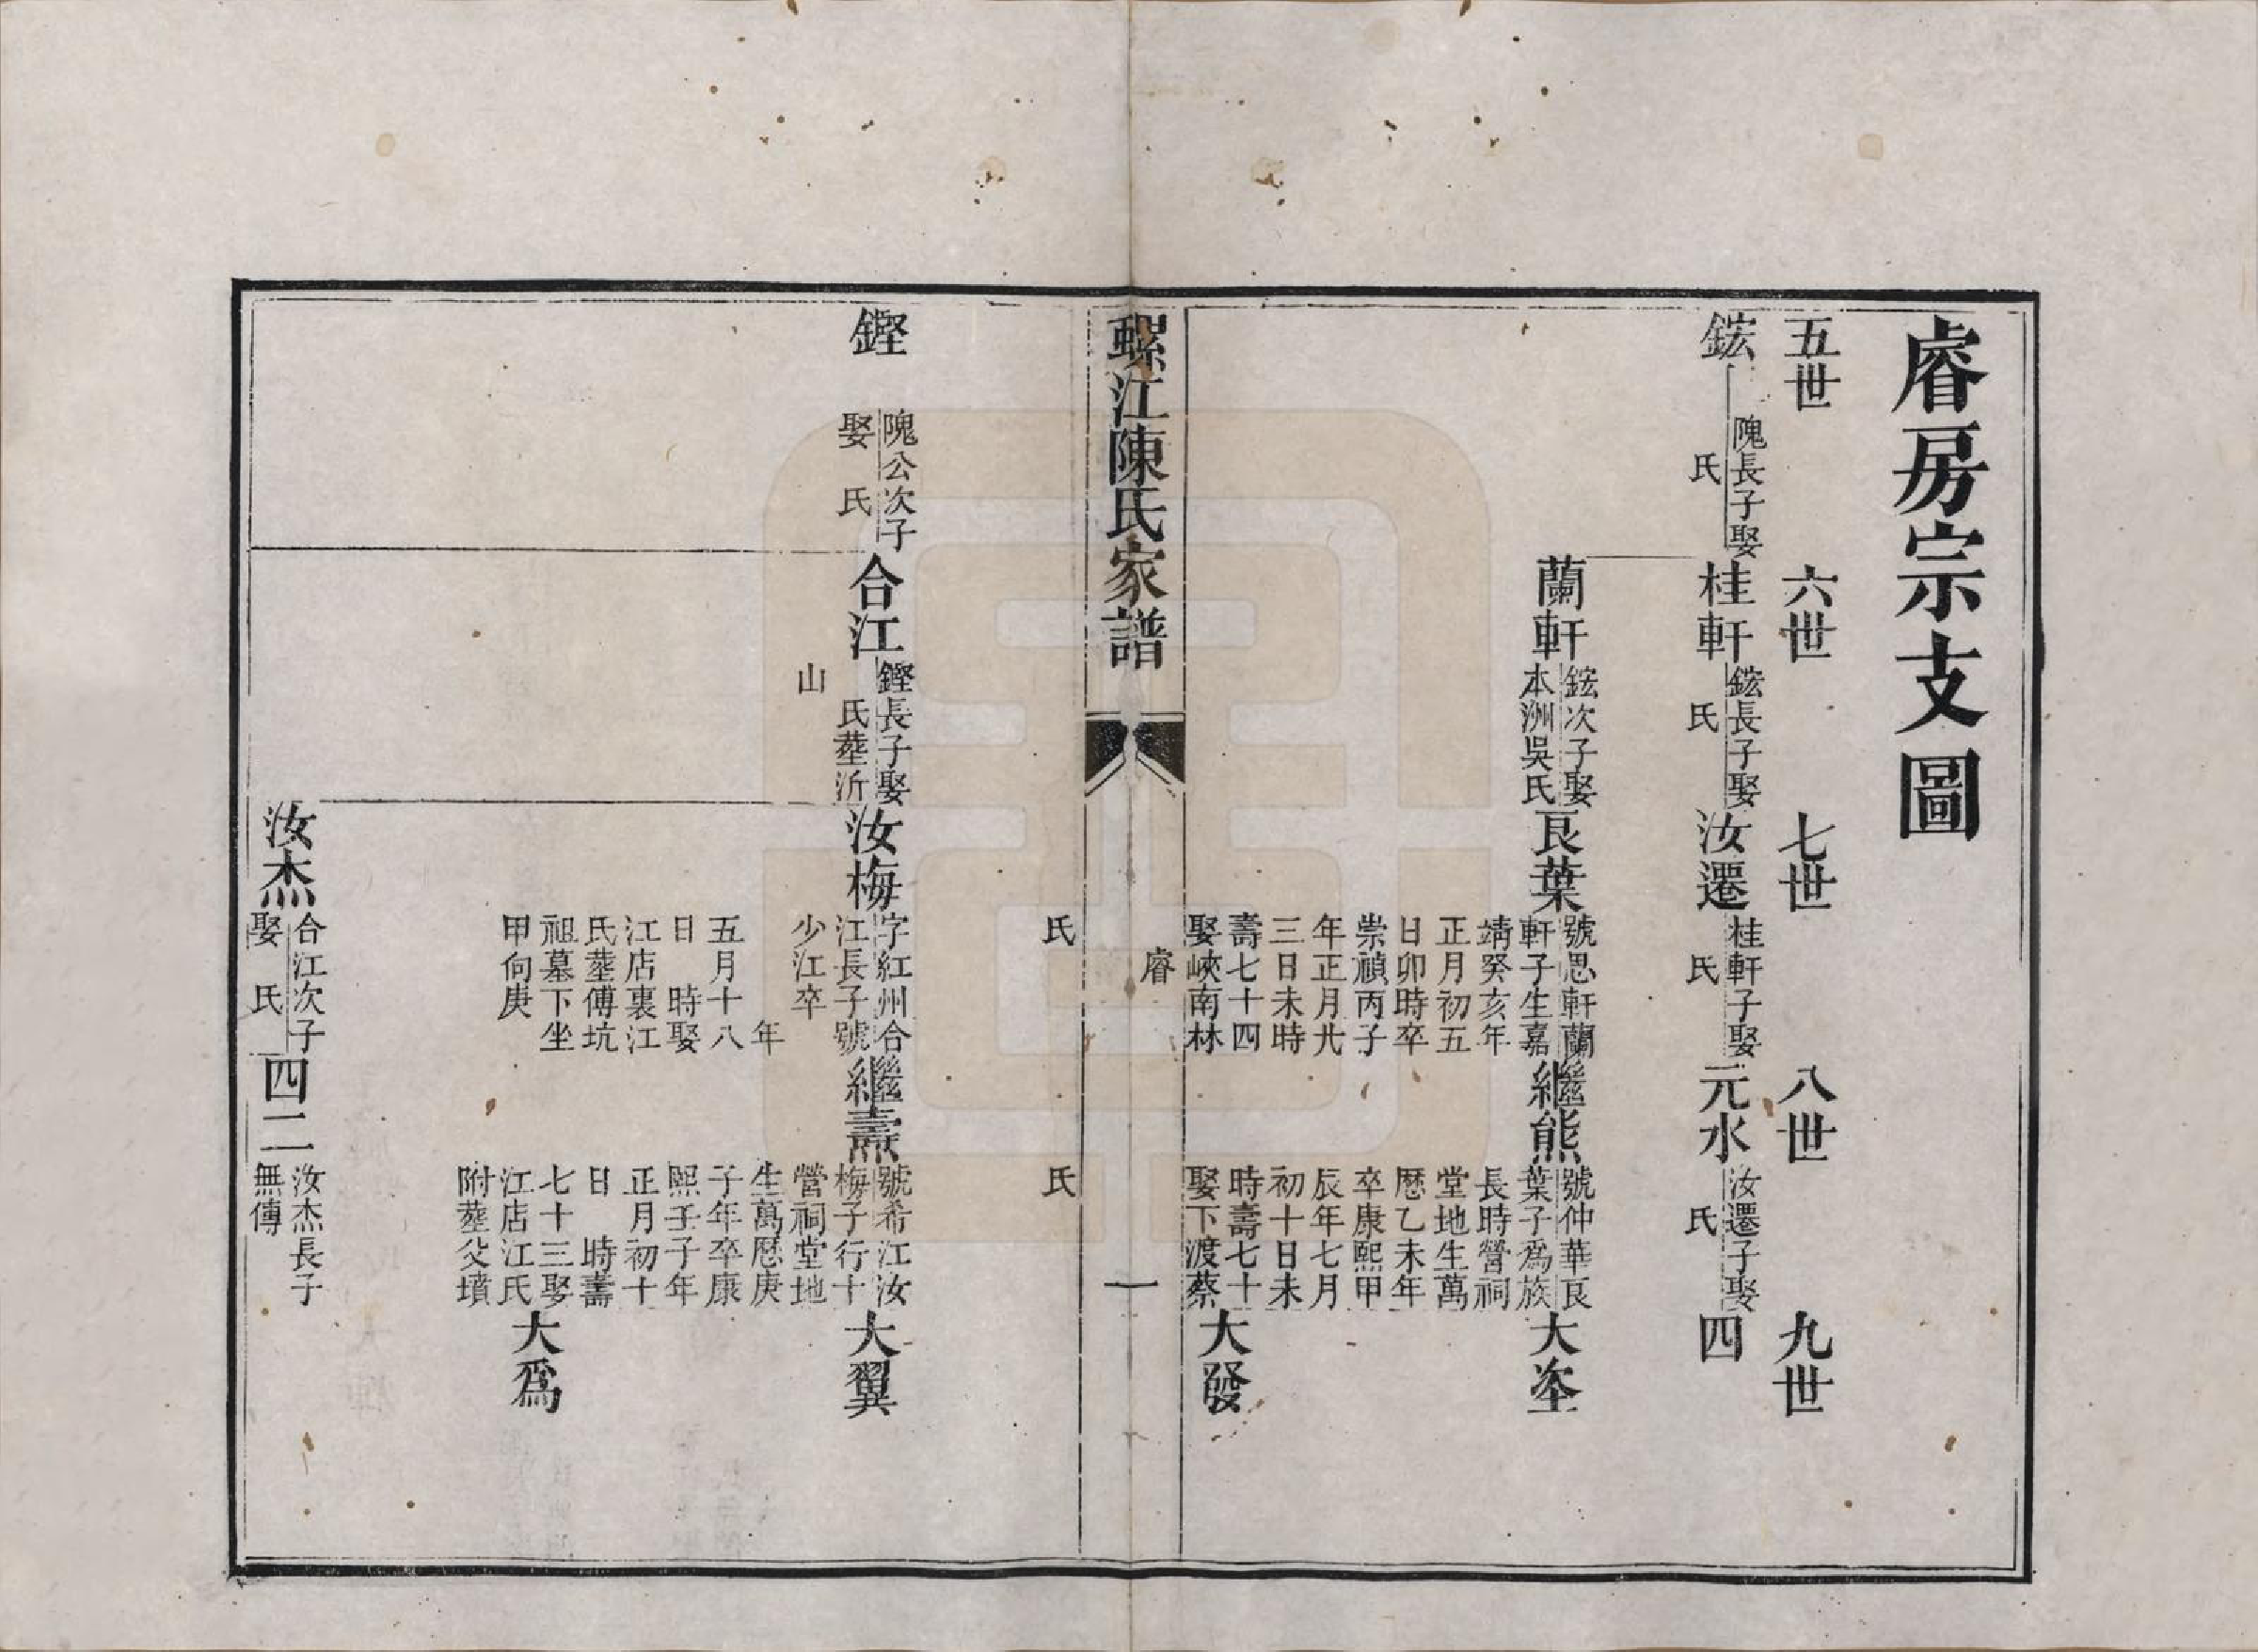 睿房宗支圖
五世
六世
七世
八世
九世
鋐
隗長子娶
氏
桂軒
鋐長子娶
氏
汝遷
桂軒子娶
氏
元水
汝遷子娶
氏
四
蘭軒
鋐次子娶
本洲吳氏
艮葉
號思軒蘭
軒子生嘉
靖癸亥年
正月初五
日卯時卒
崇禎丙子
年正月廿
三日未時
壽七十四
娶峽南林
氏
繼熊
號仲華艮
葉子為族
長時營祠
堂地生萬
厯乙未年
卒康熙甲
辰年七月
初十日未
時壽七十
娶下渡蔡
氏
大坙
大發
螺江陳氏家譜
睿
一
鏗
隗公次子
娶 氏
合江
鏗長子娶
氏塟沂
山
汝梅
字紅州合
江長子號
少江卒
年
五月十八
日 時娶
江店裏江
氏塟傅坑
祖墓下坐
甲向庚
繼壽
號希江汝
梅子行十
營祠堂地
生萬厯庚
子年卒康
熙壬子年
正月初十
日 時壽
七十三娶
江店江氏
附塟父墳
大翼
大為
汝杰
合江次子
娶 氏
四二
汝杰長子
無傳